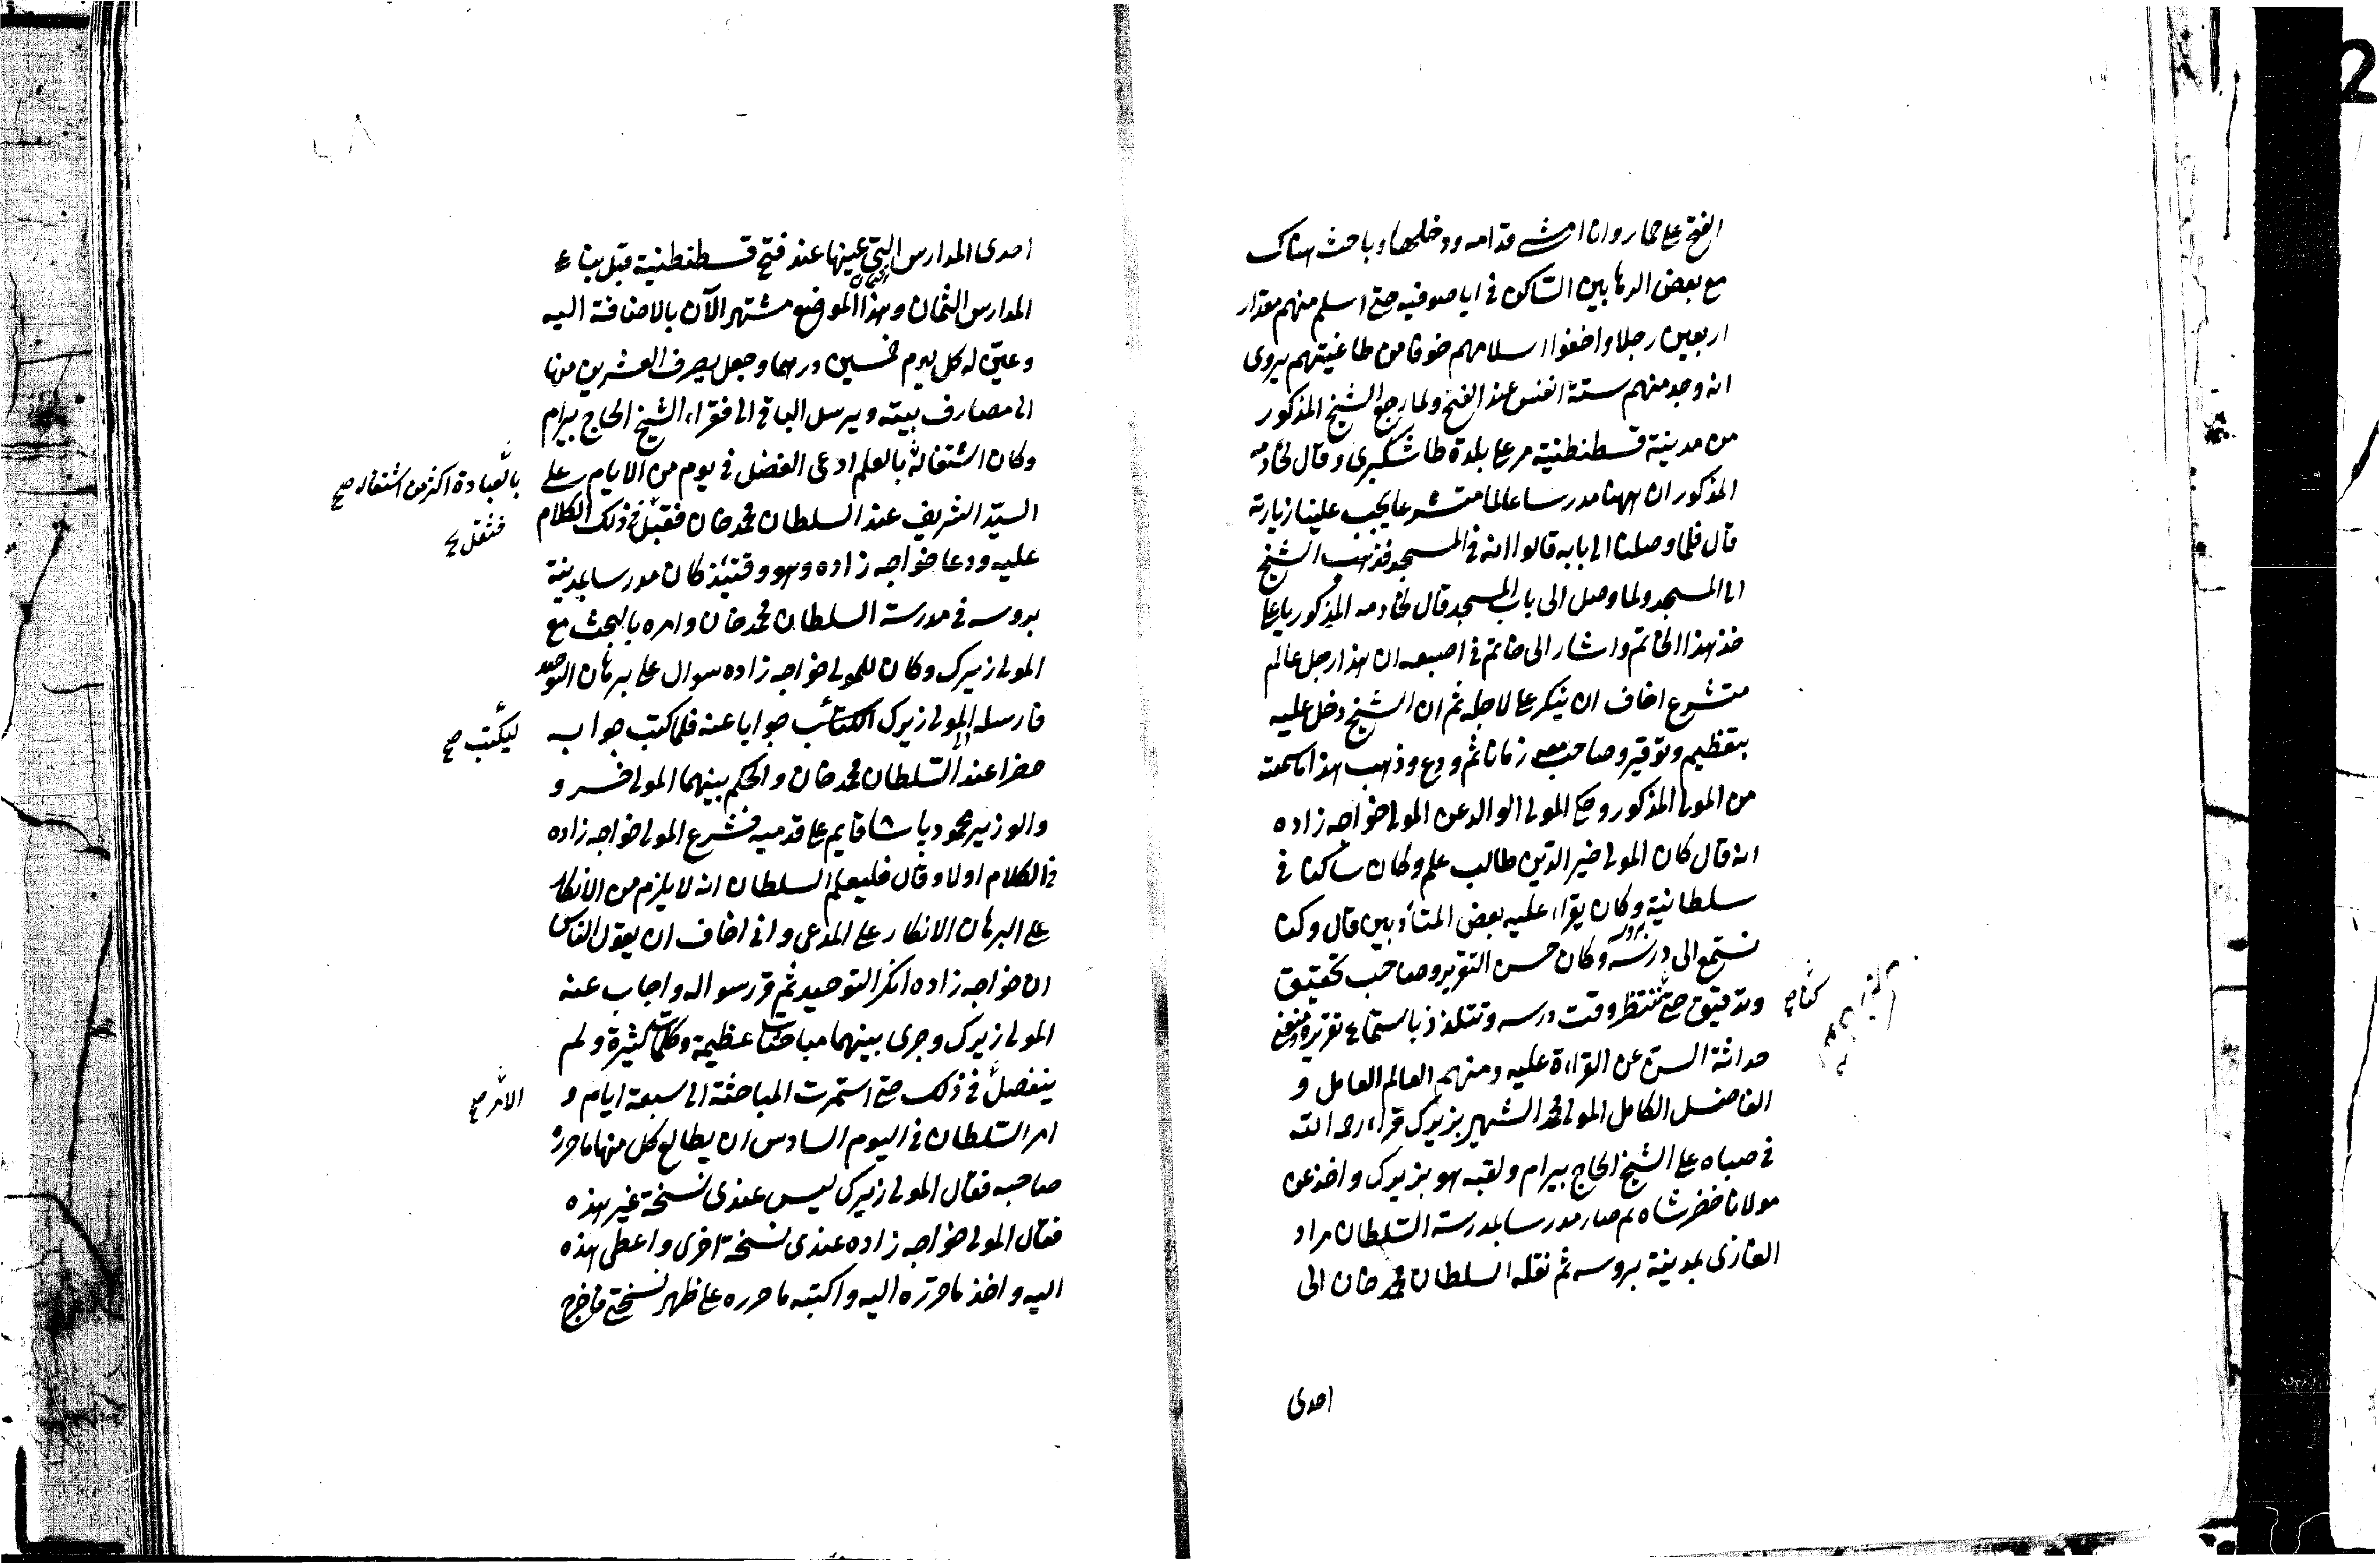 الفتح على حمار وانا امشي قدامه ودخلها وباحث هناك
مع بعض الرهابين الساكن في ايا صوفيه حتى اسلم منهم مقدار
اربعين رجلا واخفوا اسلامهم خوفا من طاغيتهم يروى
انه وجد منهم ستة انفس عند الفتح ولما رجع الشيخ المذكور
من مدينة قسطنطنية مر على بلدة طاشكبرى وقال لخادمه
المذكور ان ههنا مدرسا عالما متشرعا يجب علينا زيارته
قال فلما وصلنا الى بابه قالوا انه في المسجد فذهب الشيخ
الى المسجد ولما وصل الى باب المسجد قال لخادمه المذكور يا على
خذ هذا الخاتم واشار الى خاتم في اصبعه ان هذا رجل عالم
متشرع اخاف ان ينكر على لاجله ثم ان الشيخ دخل عليه
بتعظيم وتوقير وصاحب معه زمانا ثم ودع وذهب هذا ما سمعته
من المولى المذكور وحكى المولى الوالد عن المولى خواجه زاده
انه قال كان المولى خير الدين طالب علم وكان ساكنا في
سلطانية بروسه وكان يقراء عليه بعض المتأدبين قال وكنا
نستمع الى درسه وكان حسن التقرير وصاحب تحقيق
وتدقيق حتى ننتظر وقت درسه ونتلذذ باستماع تقريره ومنعنى
كنا صح
حداثة السن عن القراءة عليه ومنهم العالم العامل و
الفاضل الكامل المولى محمد الشهير بزيرك قراء رحمه الله
في صباه على الشيخ الحاج بيرام ولقبه هو بزيرك واخذ عن
مولانا خضرشاه ثم صار مدرسا بمدرسة السلطان مراد
الغازى بمدينة بروسه ثم نقله السلطان محمد خان الى
احدى
احدى المدارس التي عينها عند فتح قسطنطنية قبل بناء
المدارس الثمان وهذا الموضع مشتهر الآن بالاضافة اليه
وعين له كل يوم خمسين درهما وجعل يصرف العشرين منها
الى مصارف بيته ويرسل الباقي الى فقراء الشيخ الحاج بيرام
وكان اشتغاله بالعلم ادعى الفضل في يوم من الايام على
بالعبادة اكثر من اشتغاله صح
السيد الشريف عند السلطان محمد خان فقبل في ذلك الكلام
فثقل
عليه ودعا خواجه زاده وهو وقتئذ كان مدرسا بمدينة
بروسه في مدرسة السلطان محمد خان وامره بالبحث مع
المولى زيرك وكان للمولى خواجه زاده سوال على برهان التوحيد
فارسله الى المولى زيرك الكتائب جوابا عنه فلما كتب جوابه
ليكتب صح
حضرا عند السلطان محمد خان والحكم بينهما المولى خسرو
والوزير محمود پاشا قايم على قدميه فشرع المولى خواجه زاده
في الكلام اولا وقال فليعلم السلطان انه لا يلزم من الانكار
على البرهان الانكار على المدعى وانى اخاف ان يقول الناس
ان خواجه زاده انكر التوحيد ثم قرر سواله واجاب عنه
المولى زيرك وجرى بينهما مباحثات عظيمة وكلمات كثيرة ولم
ينفصل في ذلك حتى استمرت المباحثة الى سبعة ايام و
الامر صح
امر السلطان في اليوم السادس ان يطالع كل منهما ما حرره
صاحبه فقال المولى زيرك ليس عندى نسخة غير هذه
فقال المولى خواجه زاده عندى نسخة اخرى واعطى هذه
اليه واخذ ما حرره اليه واكتبه ما حرره على ظهر نسختى فاخرج